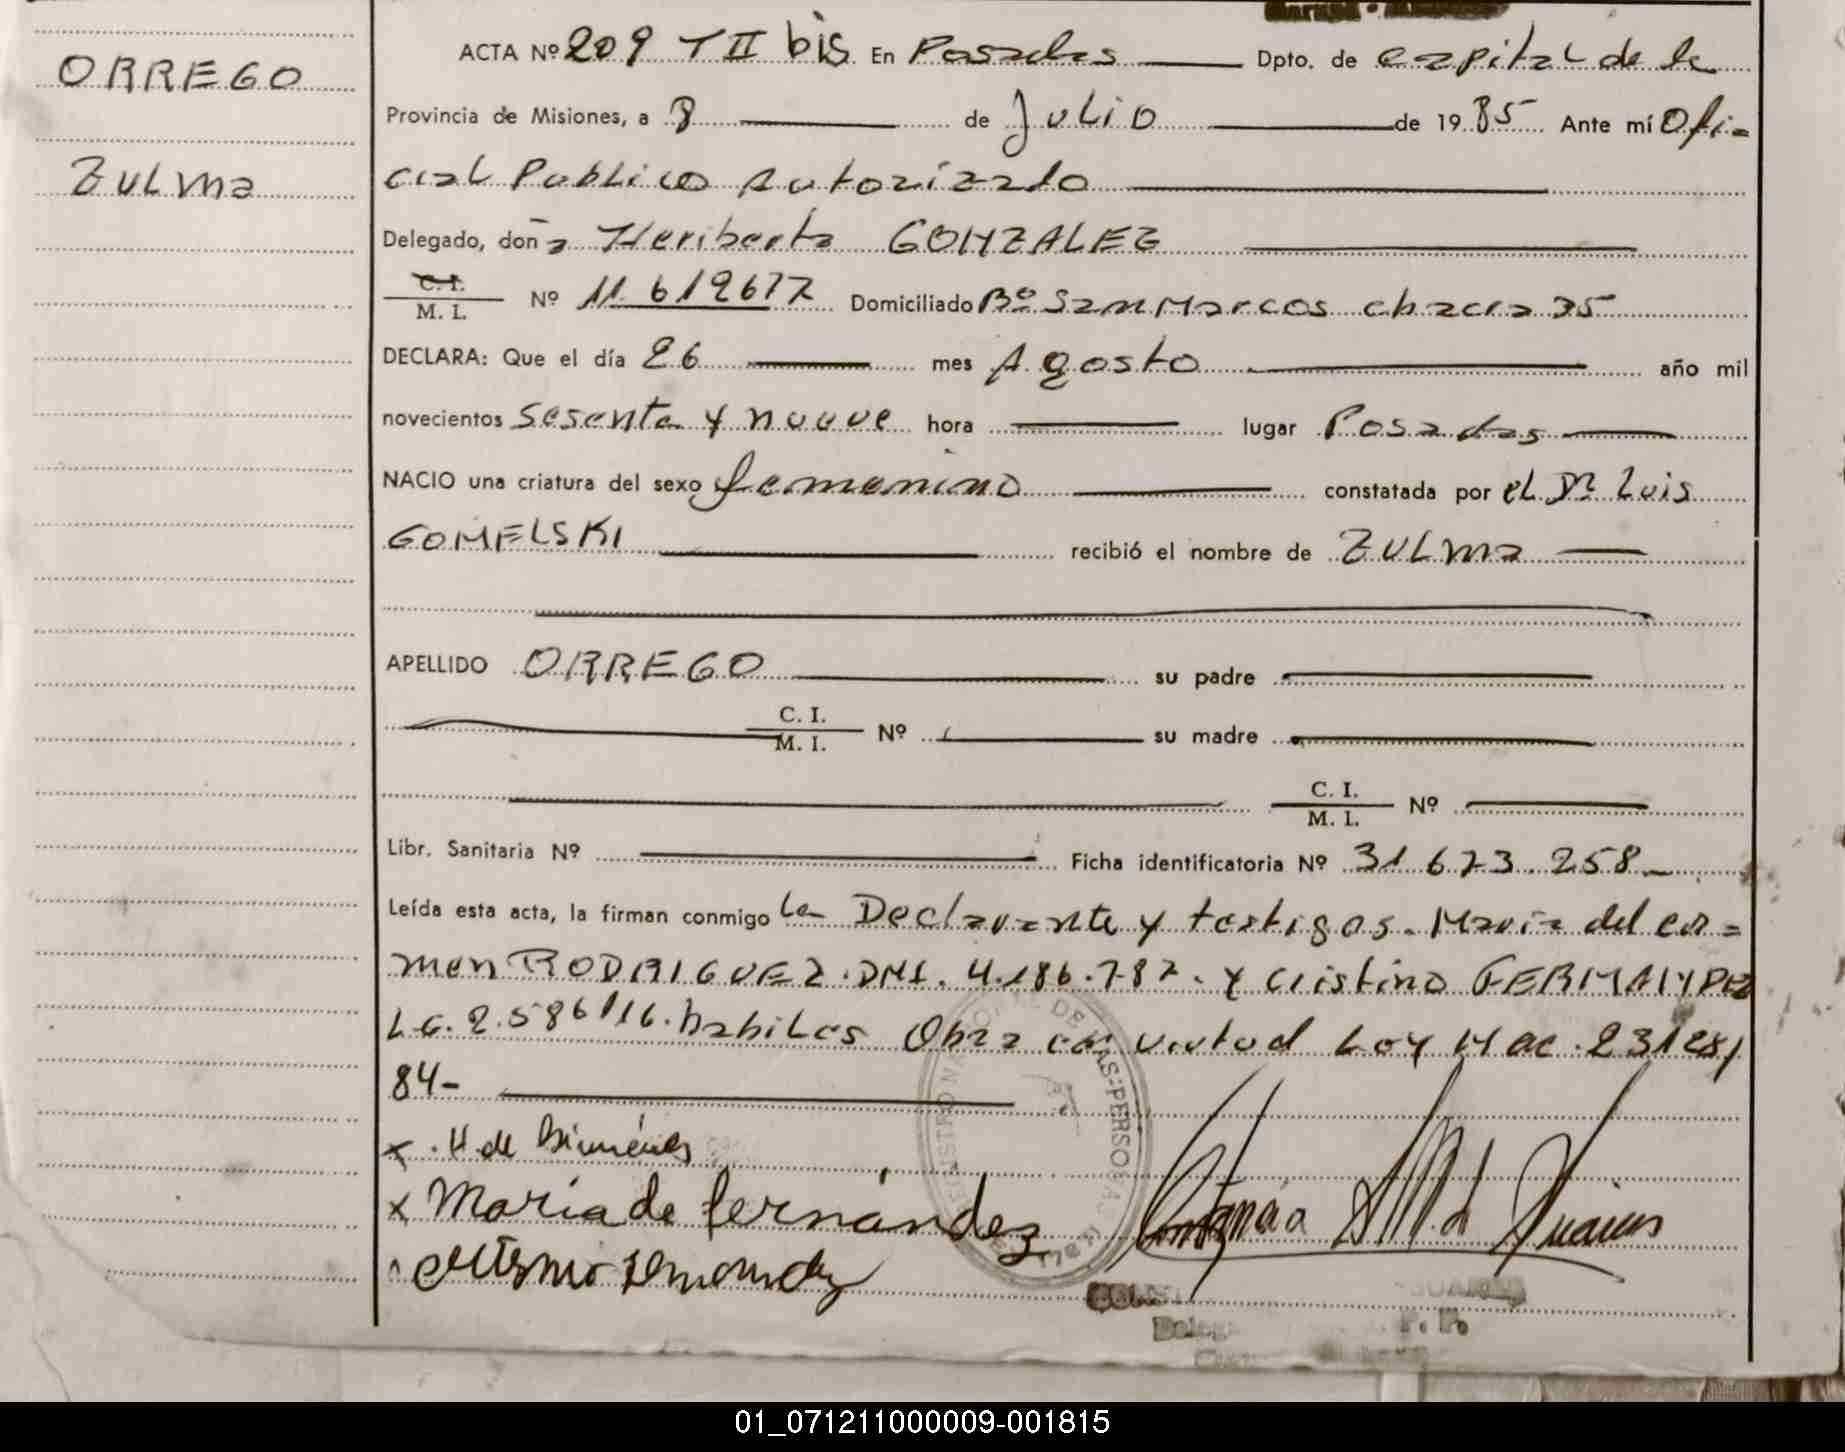 ORREGO
ZULMA
ACTA Nº 209 T II bis En Posadas Dpto. de capital de la
Provincia de Misiones, a 8 de Julio de 1985 Ante mí Ofi-
cial Publico Autorizado
Delegado, doña Heriberta GONZALEZ
C. I.
M. I. Nº 11.619677 Domiciliado Bº San Marcos chacra 35
DECLARA: Que el día 26 mes Agosto año mil
novecientos Sesenta y nueve hora lugar Posadas
NACIO una criatura del sexo femenino constatada por el Dr Luis
GOMELSKI recibió el nombre de ZULMA
APELLIDO ORREGO su padre
C. I.
M. I. Nº su madre
C. I.
M. I. Nº
Libr. Sanitaria Nº Ficha identificatoria Nº 31.673.258
Leída esta acta, la firman conmigo la Declarante y testigos. Maria del Car=
men RODRIGUEZ. DNI. 4.186.787. y Cristino FERNANDEZ
L.E. 2.586116. habiles Obra en virtud Ley Nac. 23128/
84-
x H. de
x María de fernández
01_071211000009-001815